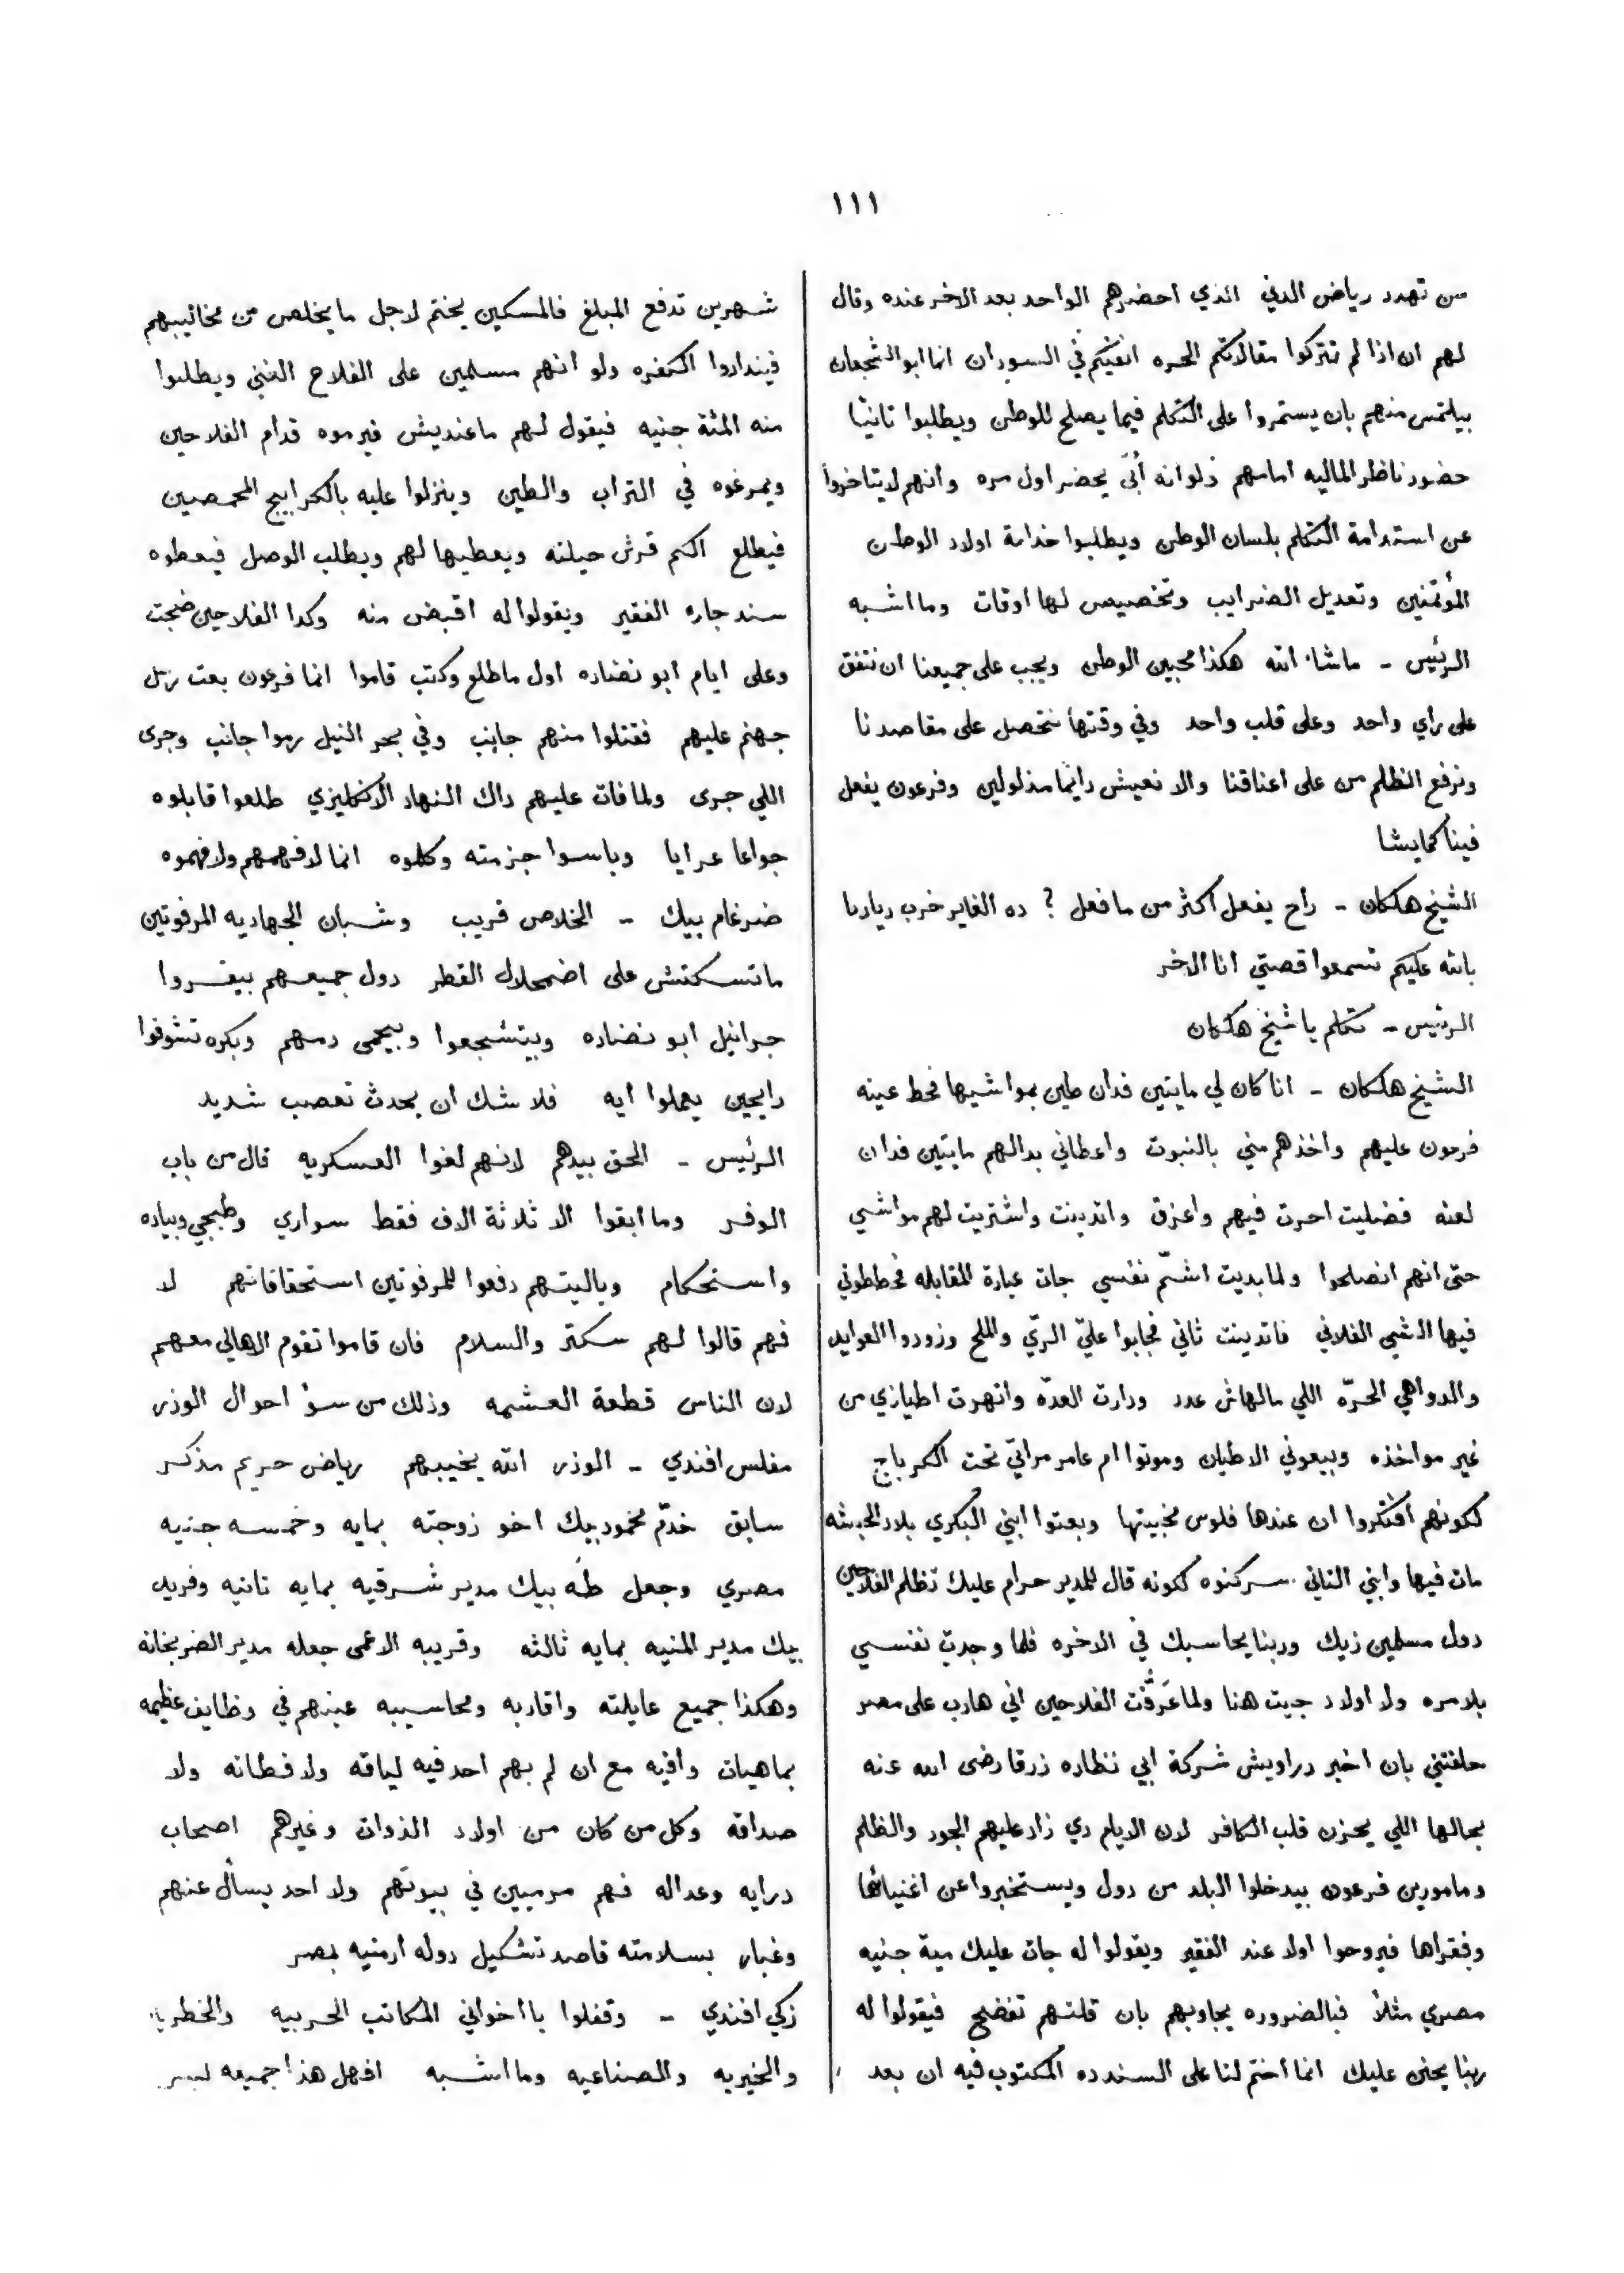 ١١١
من تهدد رياض الدني الذي احضرهم الواحد بعد الاخر عنده وقال
لهم ان اذا لم تتركوا مقالاتكم الحره انفيكم في السودان انما ابو الشجعان
بيلتمس منهم بان يستمروا على التكلم فيما يصلح للوطن ويطلبوا ثانيًا
حضور ناظر الماليه امامهم ولو انه أبَى يحضر اول مره وانهم لا يتاخروا
عن استدامة التكلم بلسان الوطن ويطلبوا خدامة اولاد الوطن
المؤتمنين وتعديل الضرايب وتخصيص لها اوقات وما اشبه
الرئيس ـ ماشاء الله هكذا محبين الوطن ويجب على جميعنا ان نتفق
على راي واحد وعلى قلب واحد وفي وقتها نتحصل على مقاصدنا
ونرفع الظلم من على اعناقنا والا نعيش دايمًا مذلولين وفرعون يفعل
فينا كمايشا
الشيخ هلكان ـ راح يفعل اكثر من ما فعل ؟ ده الغاير خرب ديارنا
بالله عليكم تسمعوا قصتي انا الاخر
الرئيس ـ تكلم يا شيخ هلكان
الشيخ هلكان ـ انا كان لي مايتين فدان طين بمواشيها فحط عينه
فرعون عليهم واخذهم مني بالنبوت واعطاني بدالهم مايتين فدان
لعنه فضليت احرت فيهم واعزق واتدينت واشتريت لهم مواشي
حتى انهم انصلحوا ولما بديت اشمّ نفسي جات عبارة المقابله فحططوني
فيها الشي الفلاني فاتدينت ثاني فجابوا عليّ الريّ والملح وزودوا العوايد
والدواهي الحرّه اللي مالهاش عدد ودارت العدّه وانهرت اطيازي من
غير مواخذه وبيعوني الاطيان وموتوا ام عامر مراتي تحت الكرباج
لكونهم افتكروا ان عندها فلوس مخبيتها وبعتوا ابني البكري بلاد الحبشه
مات فيها وابني التاني سركنوه لكونه قال للمدير حرام عليك تظلم الفلاحين
دول مسلمين زيك وربنا يحاسبك في الاخره فلما وجدت نفسي
بلا مره ولا اولاد جيت هنا ولما عَرِفُت الفلاحين اني هارب على مصر
حلفتني بان اخبر دراويش شركة ابي نظاره زرقا رضى الله عنه
بحالها اللي يحزن قلب الكافر لان الايام دي زاد عليهم الجور والظلم
ومامورين فرعون بيدخلوا البلد من دول ويستخبروا عن اغنيائها
وفقراها فيروحوا اولا عند الفقير ويقولوا له جات عليك مية جنيه
مصري مثلاً فبالضروره يجاوبهم بان قلتهم تفضح فيقولوا له
ربنا يحنن عليك انما اختم لنا على السند ده المكتوب فيه ان بعد
شهرين تدفع المبلغ فالمسكين يختم لاجل ما يخلص من مخاليبهم
فينداروا الكفره ولو انهم مسلمين على الفلاح الغني ويطلبوا
منه المئة جنيه فيقول لهم ماعنديش فيرموه قدام الفلاحين
ويمرغوه في التراب والطين وينزلوا عليه بالكرابيج المحمصين
فيطلع اكم قرش حيلته ويعطيها لهم ويطلب الوصل فيعطوه
سند جاره الفقير ويقولوا له اقبض منه وكدا الفلاحين ضجت
وعلى ايام ابو نضاره اول ما طلع وكتب قاموا انما فرعون بعت
جهنم عليهم فقتلوا منهم جانب وفي بحر النيل رموا جانب وجرى
اللي جرى ولما فات عليهم داك النهار الانكليزي طلعوا قابلوه
جواعا عرايا وباسوا جزمته وكلموه انما لا فهمهم ولا فهموه
ضرغام بيك ـ الخلاص قريب وشبان الجهاديه المرفوتين
ماتسكتش على اضمحلال القطر دول جميعهم بيقروا
جرانيل ابو نضاره وبيتشجعوا وبيحمى دمهم وبكره تشوفوا
رايحين يعملوا ايه فلا شك ان يحدث تعصب شديد
الرئيس ـ الحق بيدهم لانهم لغوا العسكريه قال من باب
الوفر وما ابقوا الا ثلاثة الاف فقط سواري وطبجي وبياده
واستحكام وياليتهم دفعوا للمرفوتين استحقاقاتهم لا
فهم قالوا لهم سكتر والسلام فان قاموا تقوم الاهالي معهم
لان الناس قطعة العشمه وذلك من سؤ احوال الوزر
مفلس افندي ـ الوزر الله يخيبهم رياض حريم مذكر
سابق خدّم محمود بيك اخو زوجته بمايه وخمسه جنيه
مصري وجعل طه بيك مدير شرقيه بمايه تانيه وفريد
بيك مدير المنيه بمايه ثالثه وقريبه الاعمى جعله مدير الضربخانه
وهكذا جميع عايلته واقاربه ومحاسيبه عينهم في وظايف عظيمه
بماهيات وافيه مع ان لم بهم احد فيه لياقه ولا فطانه ولا
صداقه وكل من كان من اولاد الذوات وغيرهم اصحاب
درايه وعداله فهم مرميين في بيوتهم ولا احد يسأل عنهم
وغبار بسلامته قاصد تشكيل دوله ارمنيه بمصر
زكي افندي ـ وقفلوا يا اخواني المكاتب الحربيه
والخيريه والصناعيه وما اشبه افهل هذا جميعه